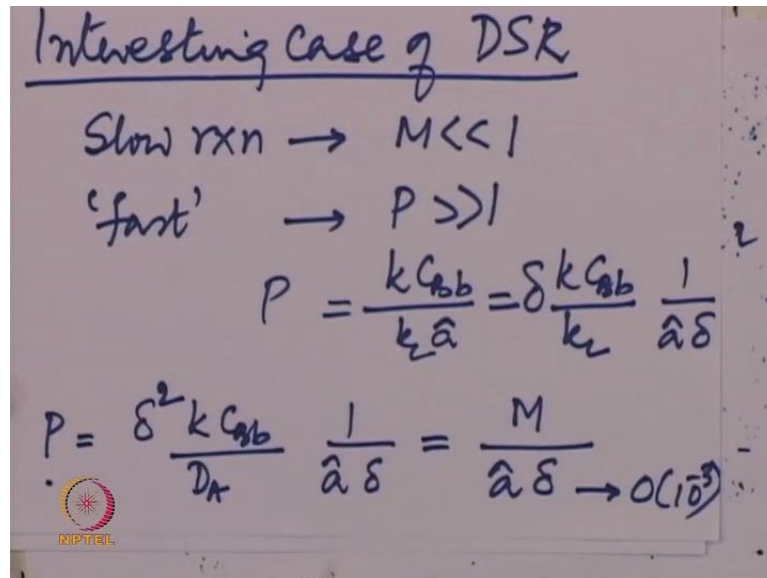 Interesting Case of DSR
Slow rxn → M<<1
'fast' → P>>1
P = k C_Bb / k_L â = δ k C_Bb / k_L 1 / â δ
P = δ² k C_Bb / D_A 1 / â δ = M / â δ → O(10⁻³)
NPTEL